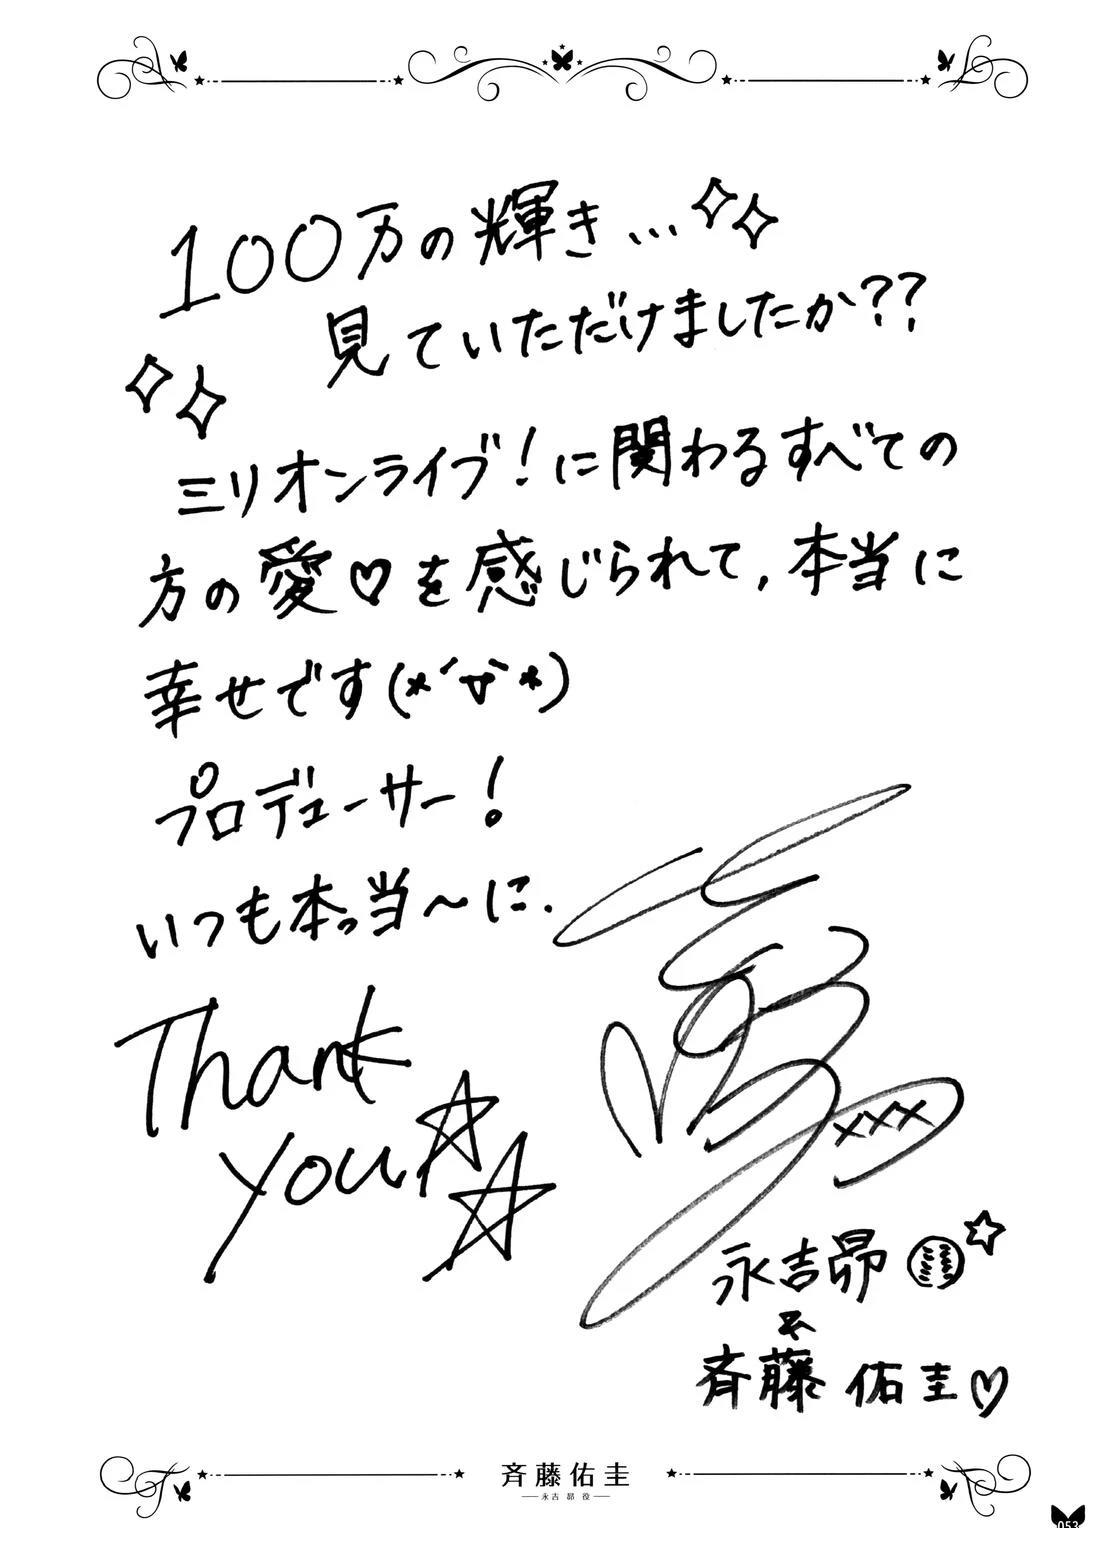 100万の輝き…
見ていただけましたか??
ミリオンライブ!に関わるすべての
方の愛♡を感じられて,本当に
幸せです(*´▽`*)
プロデューサー!
いつも本っ当〜に.
Thank
you☆☆
永吉昴
&
斉藤佑圭♡
斉藤佑圭
永吉 昴 役
053